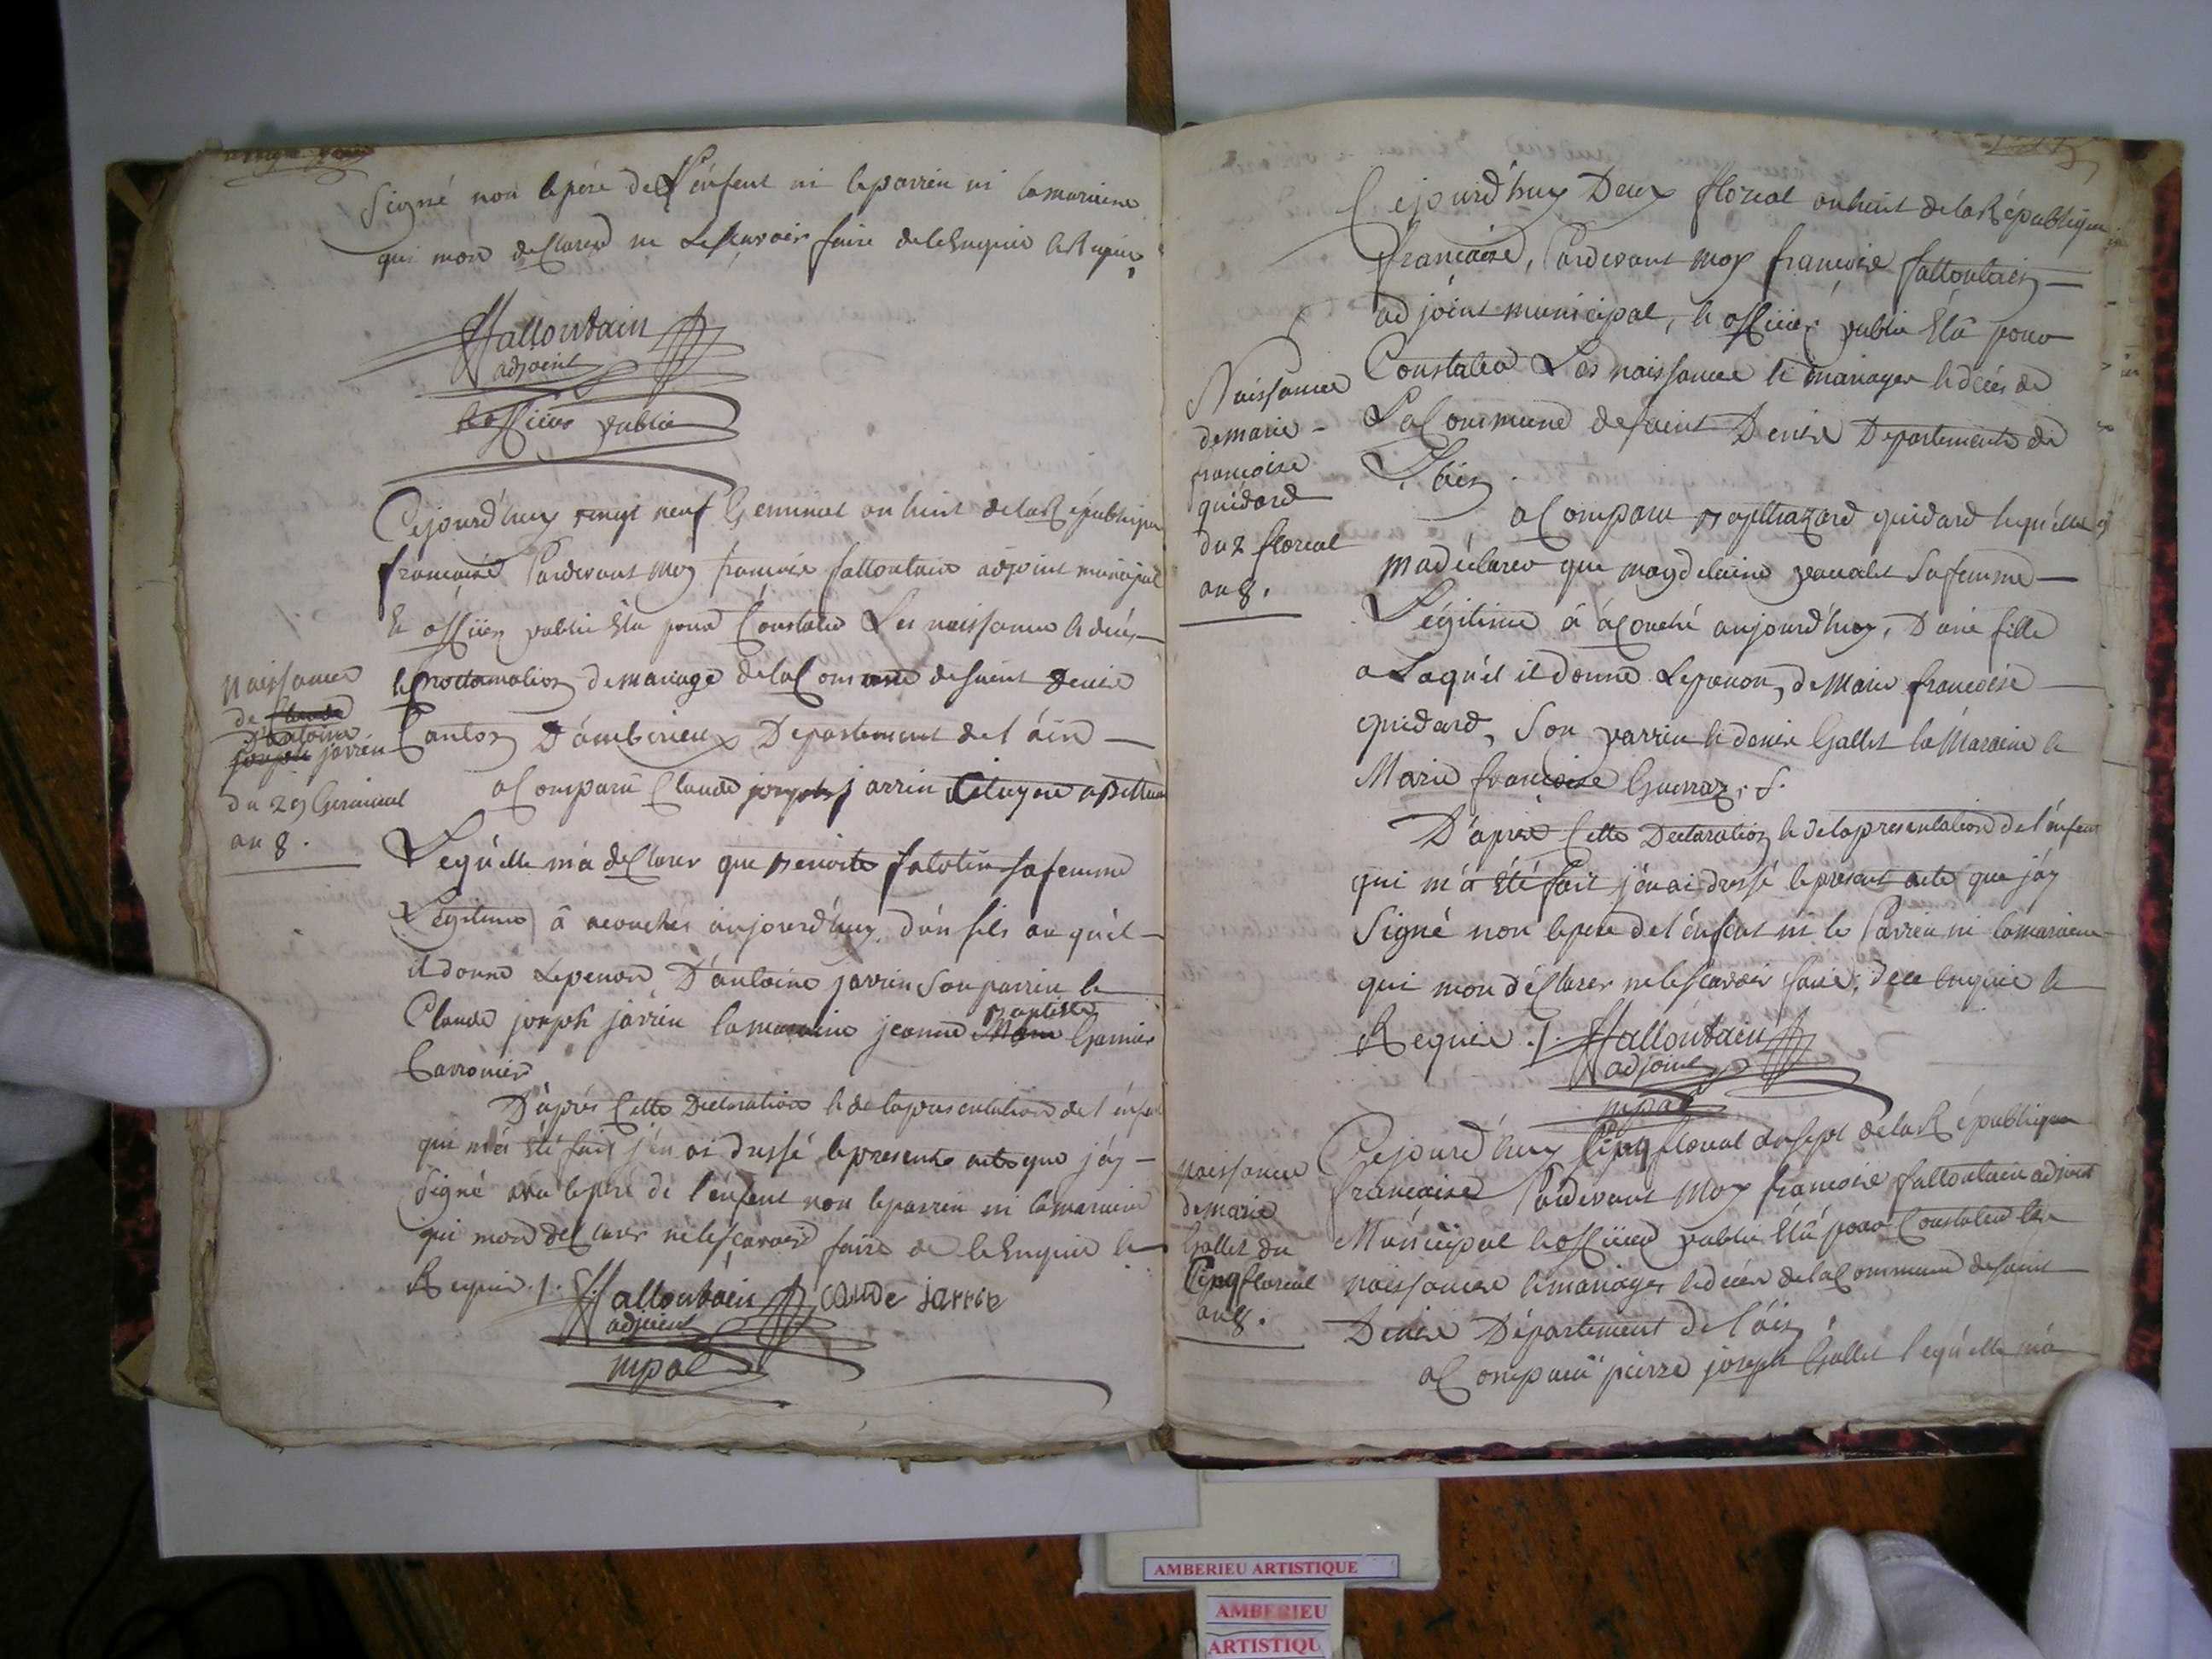 Signé non le pére de L'énfent ni le parrein ni la maraine
qui mon desClarer ne Le scavoir faire de le Enquie le Requie
ffallontain
adjoint
et officier public
Cejourd'huy vingt neuf Germinal an huit de la République
françaisé Pardevant moy françoise fallontain adjoint municipal
et officier public élu pour Constater Les naissance le décés
le proclamation de mariage de la Commune de saint Denise
Canton D'amberieux Departement de l'áin
Naissance
de Claude
D'antoine
joseph jarrin
du 29 Germinal
an 8.
a Comparu Claude joseph jarrin
Lequélle m'a desClarer que Benoite falotin sa femme
Légitime â acouchés aujourd'huy, d'ún fils au quél
il donne Le penon D'antoine jarrin son parrin le
Claude joseph járrin la maraine jeanne Marie Baptiste Garnier
D'áprés Cette Declaration le de la presentation de l'énfent
qui m'á été fait j'én ai dressé le presente acte que j'áy
Signé avec le pére de l'énfent non le parrin ni la maraine
qui mon desClarer ne le scavoir faire de le Enquie le
Requie ./. ffallontain claude jarrin
adjoint
mpal
Cejourd'huy Deux floreal an huit de la République
française, Pardevant moy françoise fallontain
adjoint municipal, le officier public élû pour
Constater Les naissance le mariages le décés de
La Commune de saint Denise Departemente de
L'ain
Naissance
de marie
françoise
guidard
du 2 floreal
an 8.
a Comparu Balthazard guidard lequélle
m'a déclarer que magdelaine sa femme
Légitime á acouché aujourd'huy, D'une fille
a Laquél il donne Le penon, de Marie françoise
guidard, Son parrin le denise Gallet la Maraine le
Marie françoise Guerraz
D'áprés Cette Declaration le de la presentation de l'énfent
qui m'á été fait j'én ai dressé le present acte que j'áy
Signé non le pere de l'énfent ni le Parrein ni la maraine
qui mon désClarer ne le scavoir faire, de ce enquie le
Requie ./. ffallontain
adjoint
mpal
Cejourd'huy Cinq floreal an sept de la République
française Pardevant moy françoise fallontain adjoint
Municipal le officier public élû pour Constater les
naissance le mariages le décés de la Commune de saint
Denise Département de l'áin
Naissance
de marie
Gallet du
Cinq floreal
an 8.
a Comparu pierre joseph Gallet lequélle m'á
AMBERIEU ARTISTIQUE
AMBERIEU
ARTISTIQU